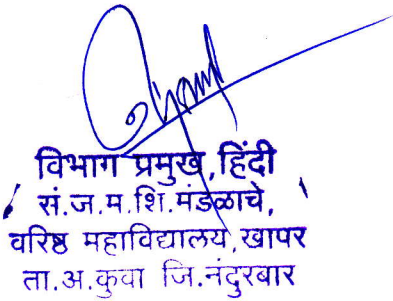 विभाग प्रमुख,हिंदी
सं.ज.म.शि.मंडळाचे,
वरिष्ठ महाविद्यालय,खापर
ता.अ.कुवा जि.नंदुरबार